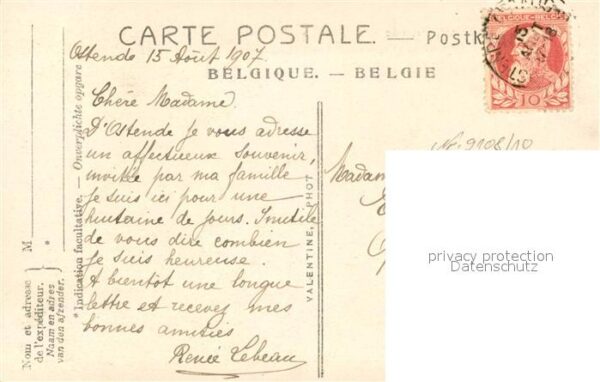 CARTE POSTALE. — Postk
BELGIQUE. — BELGIE
BELGIQUE-BELG
10
Ostende 15 Août 1907.
Chère Madame,
D'Ostende je vous adresse
un affectueux souvenir,
invitée par ma famille
je suis ici pour une
huitaine de jours. Inutile
de vous dire combien
je suis heureuse.
A bientôt une longue
lettre et recevez mes
bonnes amitiés
Renée Lebeau
Nr. 9108/10
Madam
privacy protection
Datenschutz
VALENTINE, PHOT
*Indication facultative. — Onverplichte opgave
M
*
Nom et adresse
de l'expéditeur.
Naam en adres
van den afzender.